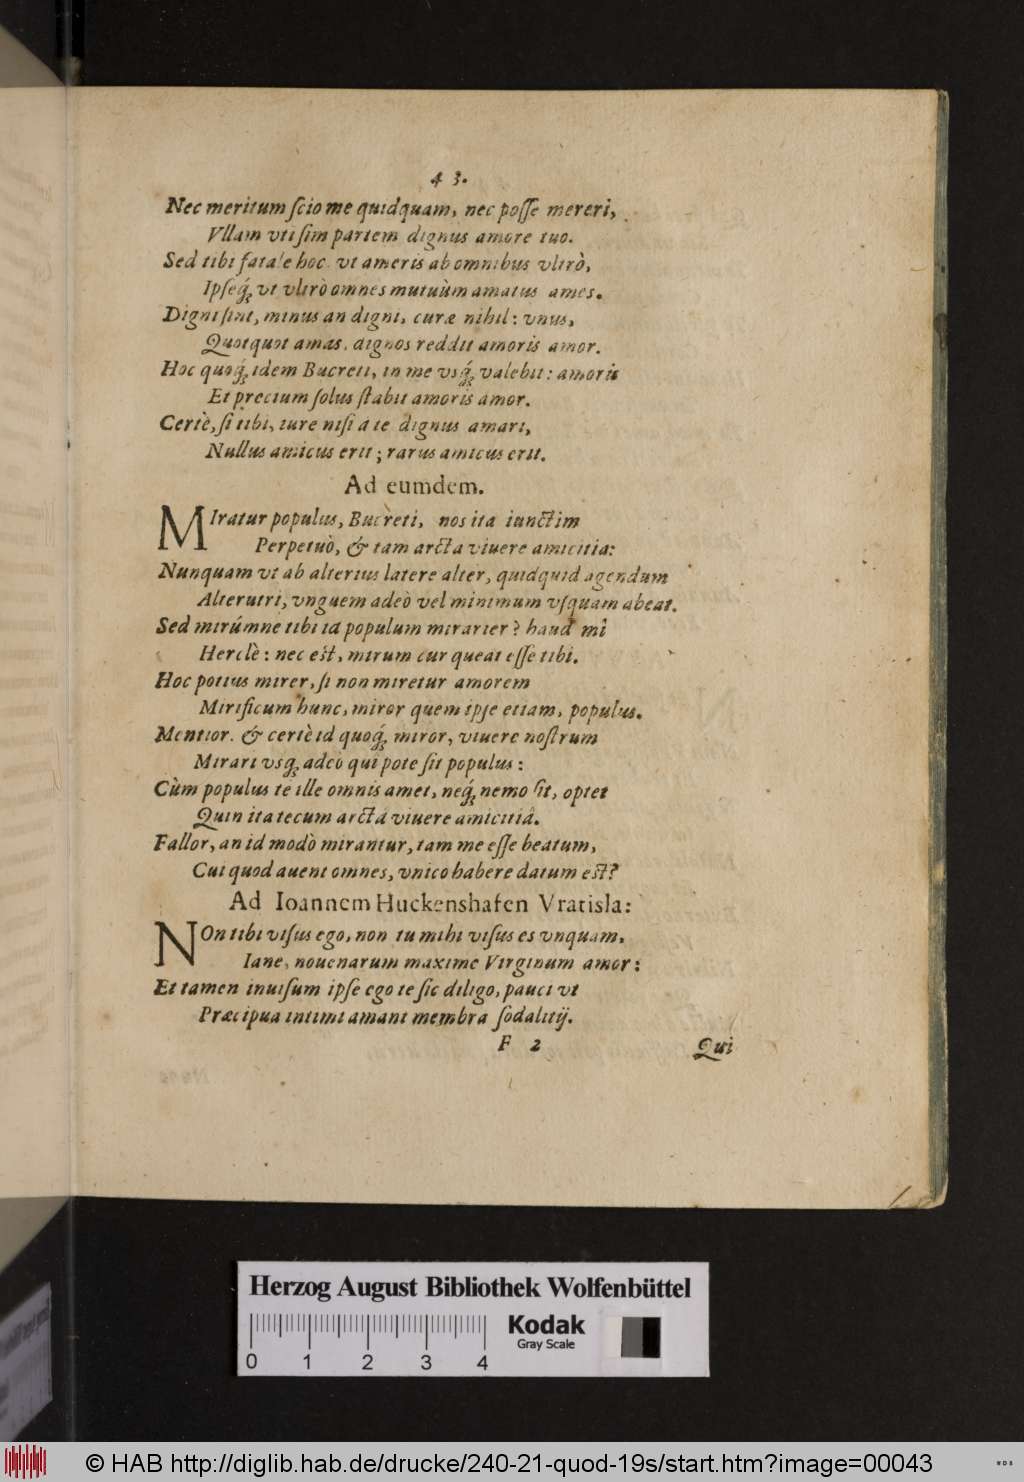 43.
Nec meritum ſcio me quidquam, nec poſſe mereri,
Vllam vti ſim partem dignus amore tuo.
Sed tibi fatale hoc. vt ameris ab omnibus vltrò,
Ipſeq́; vt vltrò omnes mutuùm amatus ames.
Digni ſint, minus an digni, curæ nihil: vnus,
Quotquot amas, dignos reddit amoris amor.
Hoc quoq́; idem Bucreti, in me vsq́; valebit: amoris
Et precium ſolus ſtabit amoris amor.
Certè, ſi tibi, iure niſi a te dignus amari,
Nullus amicus erit; rarus amicus erit.
Ad eumdem.
MIratur populus, Bucreti, nos ita iunctim
Perpetuò, & tam arcta viuere amicitia:
Nunquam vt ab alterius latere alter, quidquid agendum
Alterutri, vnguem adeò vel minimum vſquam abeat.
Sed mirúmne tibi id populum mirarier? haud mî
Herclè: nec est, mirum cur queat eſſe tibi.
Hoc potius mirer, ſi non miretur amorem
Mirificum hunc, miror quem ipſe etiam, populus.
Mentior. & certè id quoq́; miror, viuere noſtrum
Mirari vsq; adeò qui pote ſit populus:
Cùm populus te ille omnis amet, neq́; nemo ſit, optet
Quin ita tecum arctâ viuere amicitiâ.
Fallor, an id modò mirantur, tam me eſſe beatum,
Cui quod auent omnes, vnico habere datum est?
Ad Ioannem Huckenshafen Vratisla:
NOn tibi viſus ego, non tu mihi viſus es vnquam,
Iane, nouenarum maxime Virginum amor:
Et tamen inuiſum ipſe ego te ſic diligo, pauci vt
Præcipua intimi amant membra ſodalitij.
F 2
Qui
Herzog August Bibliothek Wolfenbüttel
0 1 2 3 4
Kodak
Gray Scale
© HAB http://diglib.hab.de/drucke/240-21-quod-19s/start.htm?image=00043
WDB